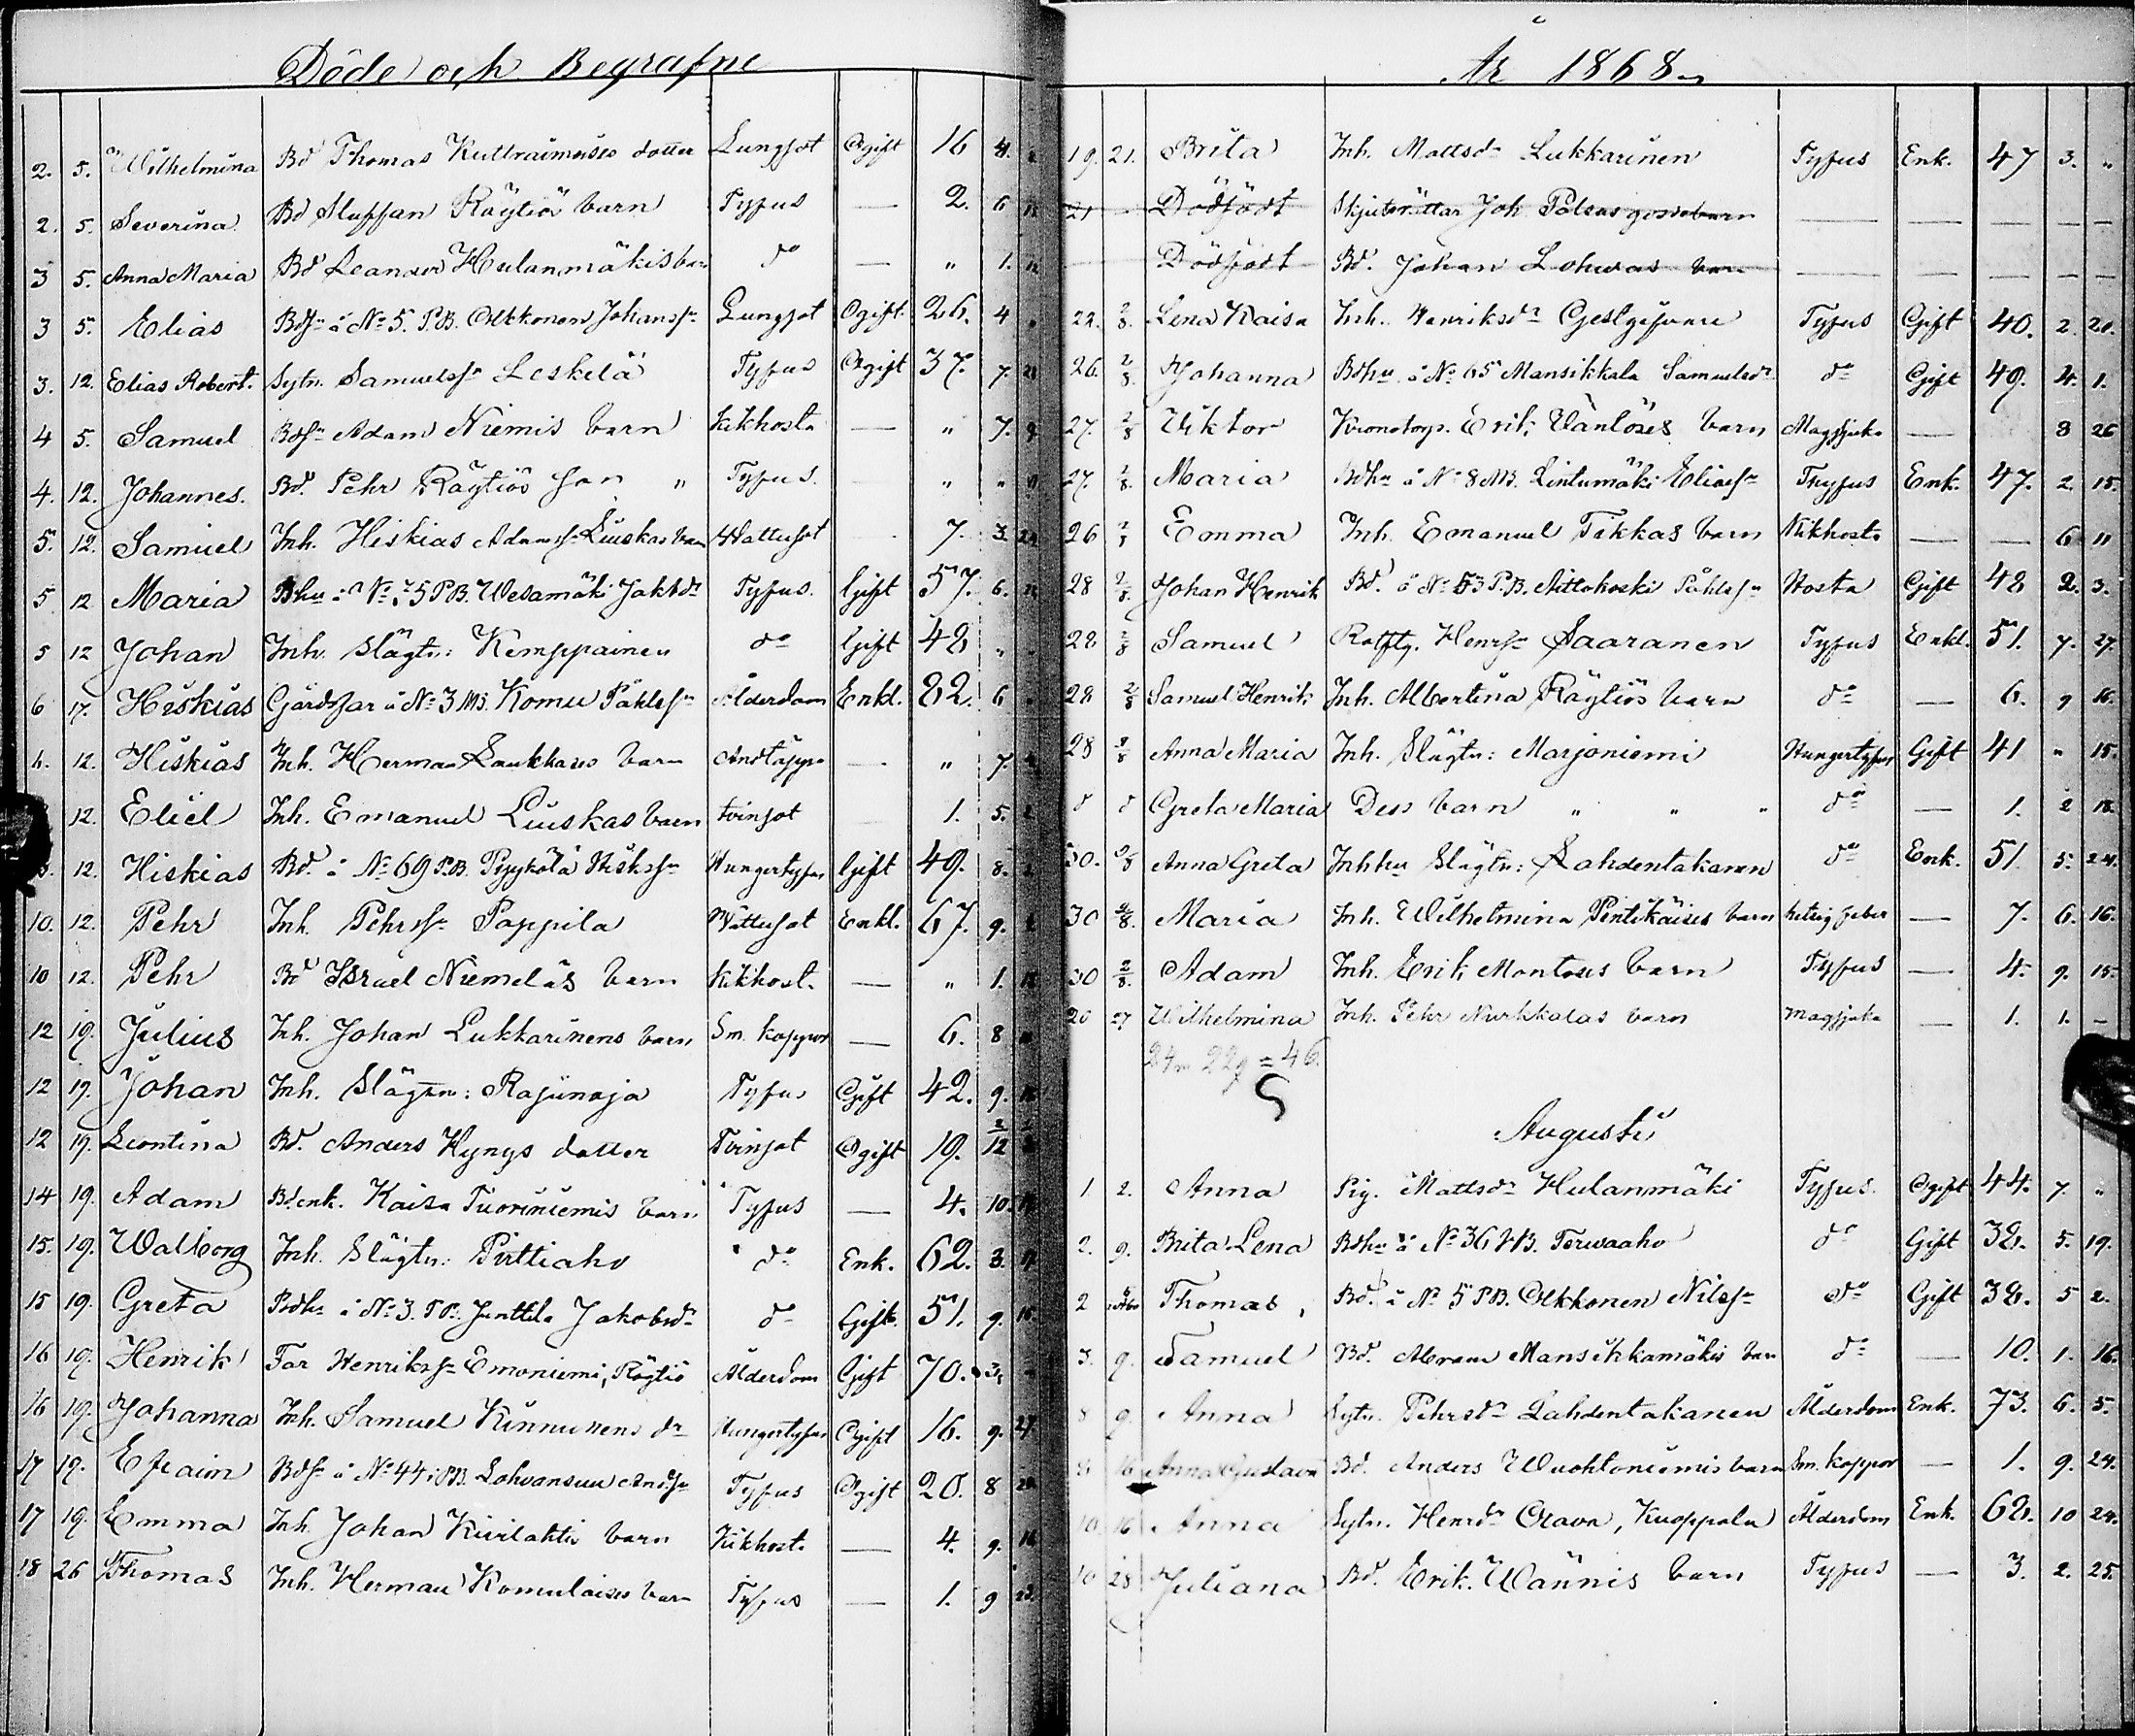 Döde och Begrafne
2. 5. Wilhelmina Bd Thomas dotter Lungsot Ogift 16 4.
2. 5. Severina Bd Staffan Räytiös barn Typus — 2. 6
3 5. Anna Maria Bd Leander Hulanmäkis barn do — " 1.
3 5. Elias Bdsn å No 5. P.B. Okkonen Johanssn Lungsot Ogift 26. 4
3. 12. Elias Robert. Sytn. Samuelssn Leskelä Typus Ogift 37. 7. 21
4 5. Samuel Bdsn Adam Niemis barn Kikhosta — " 7. 9
4. 12. Johannes. Bd. Pehr Räytiös son " Typus. " "
5. 12. Samuel Inh. Hiskias Adamssn Liuskas barn Wattusot 7. 3.
5 12 Maria Bhu å No 25 P.B. Wesamäki Jakbdr Typus. Gift 57. 6.
5 12 Johan Inh. Slägtn: Kemppainen do Gift 48 "
6 17. Hiskias Gårdsfar å No 3 MB. Komu Påhlssn Ålderdom Enkl. 82. 6
6. 12. Hiskias Inh. Herman Laukkases barn Andtäppa — " 7.
12. Eliel Inh. Emanuel Liuskas barn tvinsot 1. 5.
8. 12. Hiskias Bd. å No 69 P.B. Pyykölä Hiskssn Hungertypus Gift 49. 8.
10. 12. Pehr Inh. Pehrssn Pappila Wattusot Enkl. 67. 9.
10 12. Pehr Bd Israel Niemeläs barn Kikhost. — " 1.
12 19. Julius Inh. Johan Lukkarinens barn Sm. koppor — 6. 8
12 19. Johan Inh. Slägtn: Rajunaja Typus Gift 42. 9.
12 19. Leontina Bd. Anders Kynys dotter Tvinsot Ogift 19. 12
14 19. Adam Bd.enk. Kaisa Tuoriniemis barn Typus — 4. 10.
15. 19. Walborg Inh. Slägtn: Pirttiaho do Enk. 62. 3.
15 19. Greta Bdhu å No 3. P.B. Junttila Jakobsdr do Gift. 51. 9. 15
16 19. Henrik Far Henrikssn Emoniemi, Räytiö Ålderdom Gift 70. 3.
16 19. Johanna Inh. Samuel Kinnunens dr Hungertypus Ogift 16. 9. 27.
17 19. Efraim Bdsn å No 44 i P.B. Lohvansuu Andssn Typus Ogift 20. 8
17 19. Emma Inh. Johan Kivilahtis barn Kikhost. — 4. 9. 16
18 26 Thomas Inh. Herman Komulaises barn Typus — 1. 9
År 1868.
19. 21. Brita Inh. Mattsdr Lukkarinen Typus Enk. 47 3. "
21 Dödfödt Joh. gossebarn — — — —
Dödfödt Bd. Johan Lohvas barn — — — —
22. 2/8. Lena Kaisa Inh. Henriksdr Typus Gift 40. 2. 20.
26. 2/8. Johanna Bdhu å No 65 Mansikkala Samuelsdr do Gift 49. 4. 1.
27. 2/8 Viktor Kronotorp. Erik Wänlöses barn Magsjuka — 8 26
27. 2/8. Maria Bdhu å No 8 MB. Lintumäki Eliassn Thyfus Enk. 47. 2. 15.
26 2/8 Emma Inh. Emanuel Tikkas barn Kikhosta — — 6 11
28 2/8. Johan Henrik Bd. å No 53 P.B. Aittokoski Påhlssn Hosta Gift 48 2. 3.
28 2/8 Samuel Rotftg. Henrssn Saaranen Typus Enkl. 51. 7. 27.
28 2/8 Samuel Henrik Inh. Albertina Räytiös barn do — 6. 9 16.
28 2/8 Anna Maria Inh. Slägtn: Marjoniemi Hungertypus Gift 41 " 15.
d d Greta Maria Dess barn " " " do — 1. 2 18
30. 2/8 Anna Greta Inhhu Slägtn: Lahdentakanen do Enk. 51 5. 24.
30 2/8. Maria Inh. Wilhelmina Pentikäises barn hetsig feber — 7. 6. 16.
30 2/8. Adam Inh. Erik Montoses barn Typus — 4. 9. 15.
20 27 Wilhelmina Inh. Pehr Nurkkalas barn magsjuka — 1. 1. —
24m 22q = 46.
Augusti
1. 2. Anna Pig. Mattsdr Hulanmäki Typus. Ogift 44. 7. "
2. 9. Brita Lena Bdhu å No 36 Terwaaho do Gift 38. 5. 19.
2 Thomas, Bd. å No 5 P.B. Okkonen Nilssn do Gift 38. 5 2.
3. 9. Samuel Bd. Abram Mansikkamäkis barn do — 10. 1. 16.
8 9. Anna Sytn. Pehrsdr Lahdentakanen Ålderdom Enk. 73. 6. 5.
8 16 Anna Gustava Bd. Anders Wuohtoniemis barn Sm. koppor — 1. 9. 24.
10 16 Anna Sytn. Henrdr Orava, Kuoppala Ålderdom Enk. 68. 10 24.
10 28 Juliana Bd. Erik Wännis barn Typus — 3. 2. 25.